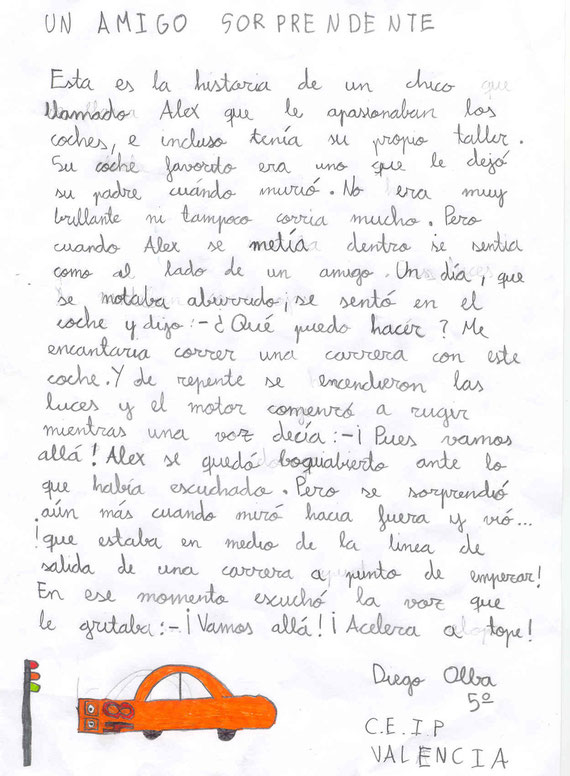 UN AMIGO SORPRENDENTE
Esta es la historia de un chico
llamado Alex que le apasionaban los
coches, e incluso tenía su propio taller.
Su coche favorito era uno que le dejó
su padre cuándo murió. No era muy
brillante ni tampoco corria mucho. Pero
cuando Alex se metía dentro se sentia
como al lado de un amigo. Un día, que
se motaba aburrido, se sentó en el
coche y dijo:-¿Qué puedo hacer? Me
encantaria correr una carrera con este
coche. Y de repente se encendieron las
luces y el motor comenzó a rugir
mientras una voz decía:-¡Pues vamos
allá! Alex se quedó boquiabierto ante lo
que había escuchado. Pero se sorprendió
aún más cuando miró hacia fuera y vió...
!que estaba en medio de la linea de
salida de una carrera a punto de empezar!
En ese momento escuchó la voz que
le gritaba:-¡Vamos allá!¡Acelera a tope!
Diego Alba
5º
C.E.I.P
VALENCIA
48